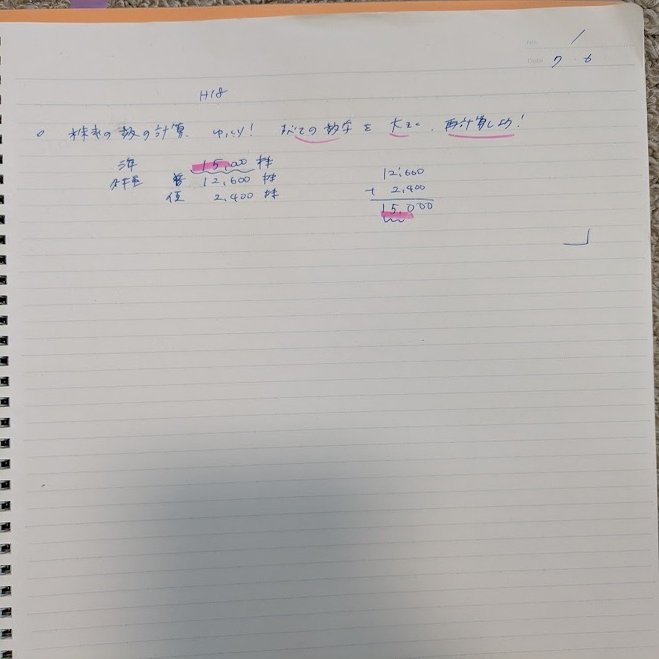 No. 1
Date 7・6
H18
○ 株式の数の計算 ゆっくり! すべての数字を大きく、再計算しよう!
15,000 株
普 12,600 株
2,400 株
12,600
+ 2,400
15,000